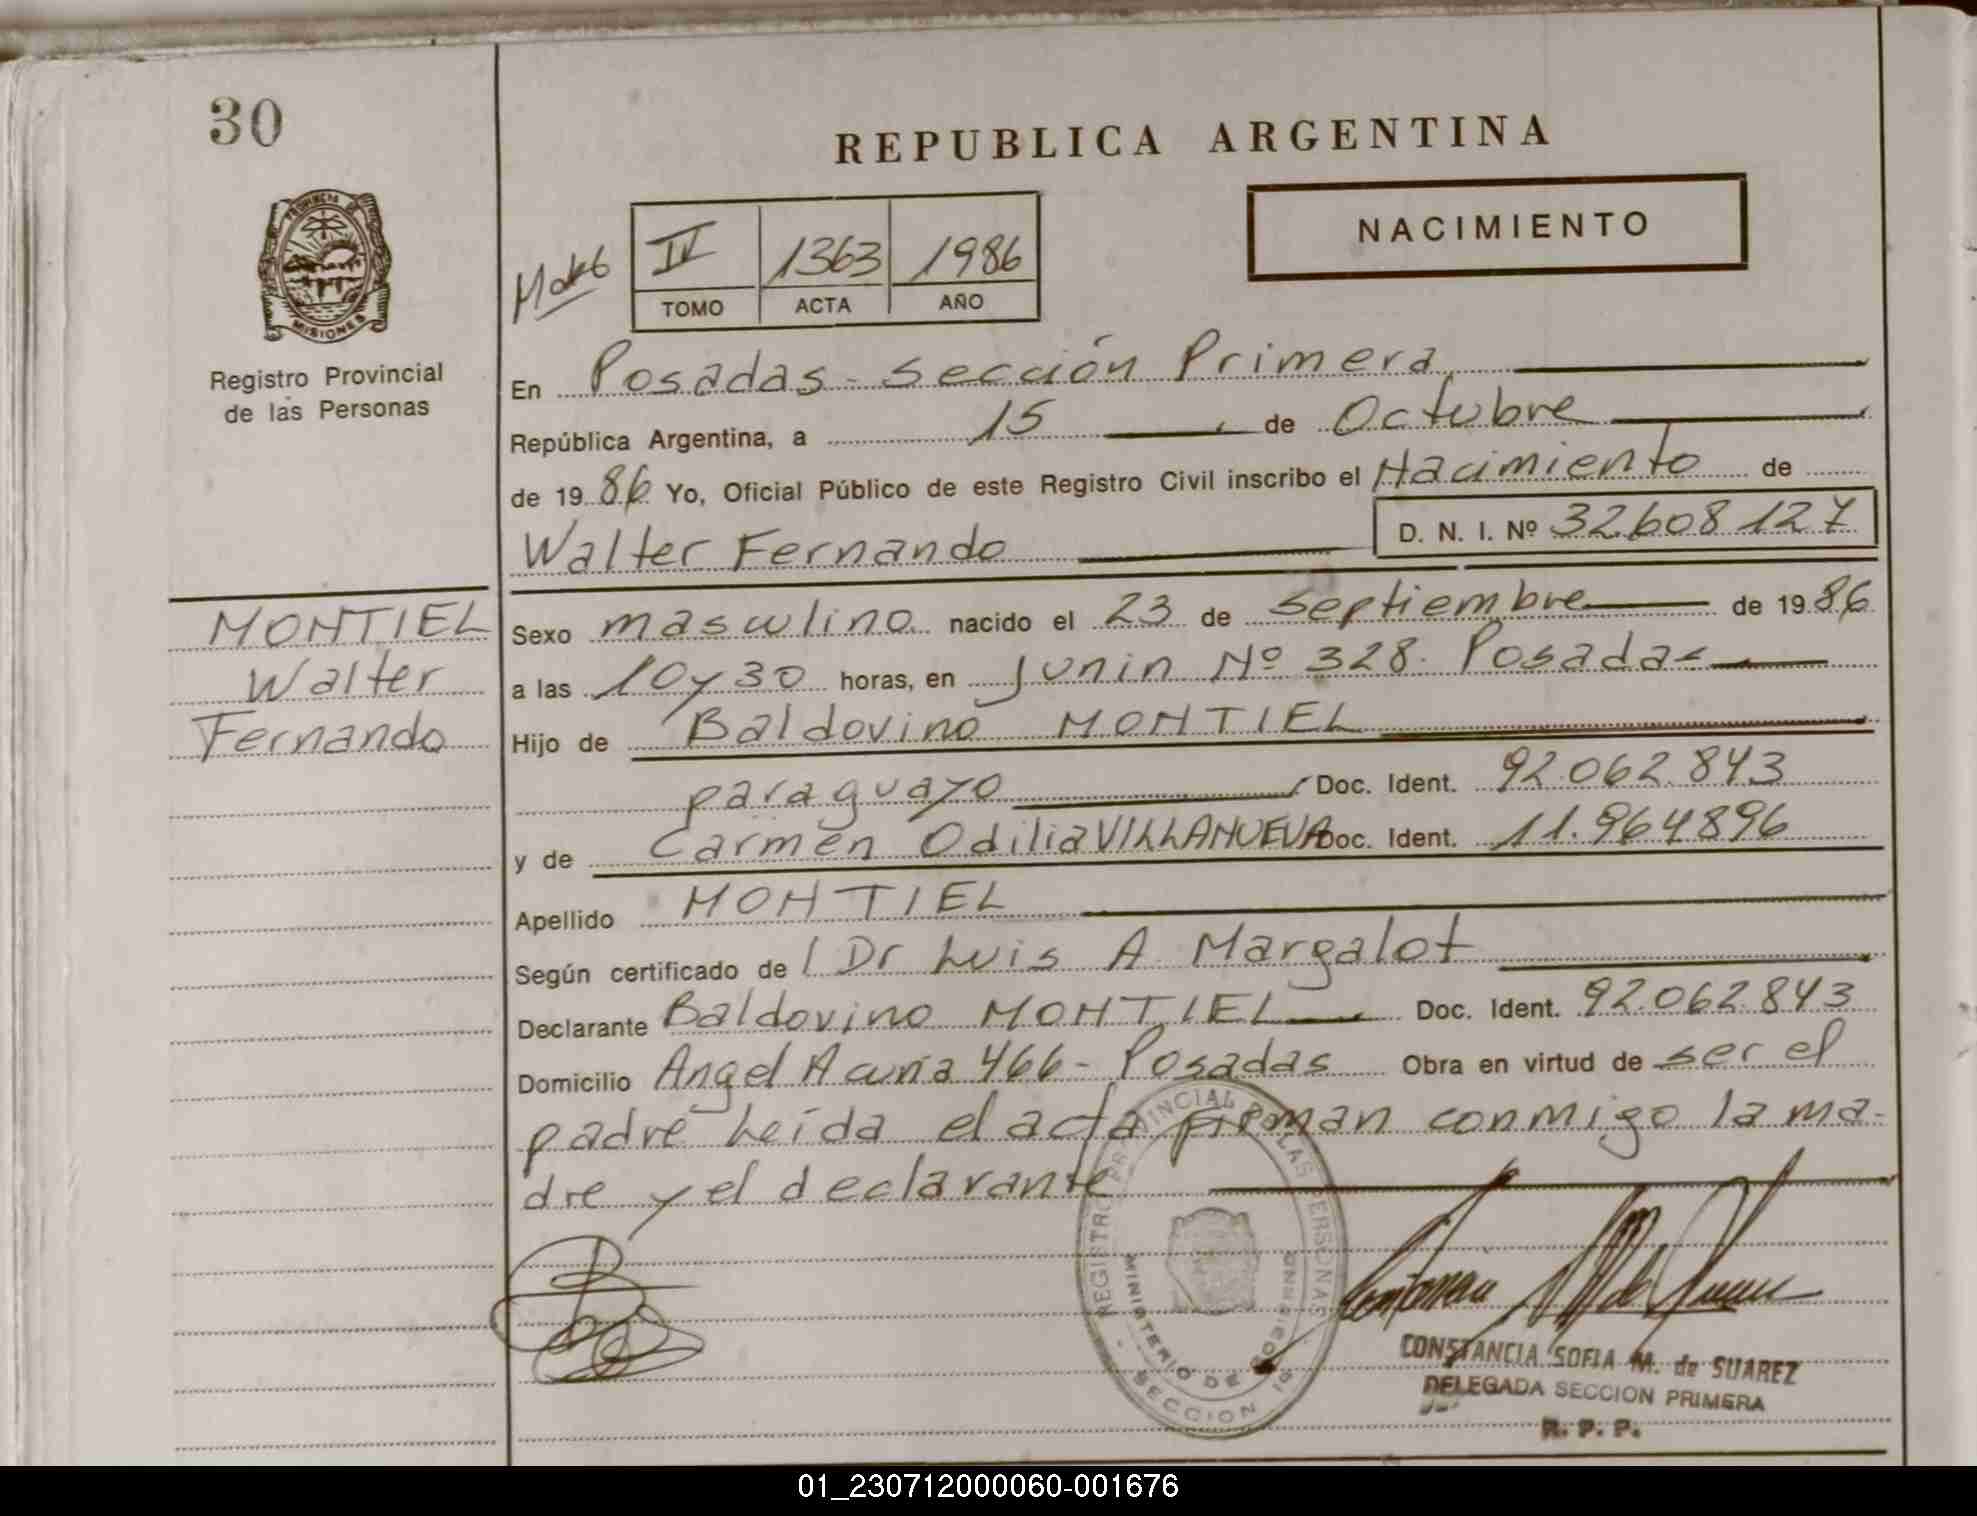 30
REPUBLICA ARGENTINA
NACIMIENTO
IV 1363 1986
TOMO ACTA AÑO
PROVINCIA DE
MISIONES
Registro Provincial
de las Personas
En Posadas - Sección Primera
República Argentina, a 15 de Octubre
de 1986 Yo, Oficial Público de este Registro Civil inscribo el Nacimiento de
Walter Fernando D. N. I. Nº 32.608.127
MONTIEL
Walter
Fernando
Sexo masculino nacido el 23 de Septiembre de 1986
a las 10 y 30 horas, en Junin Nº 328. Posadas
Hijo de Baldovino MONTIEL
paraguayo Doc. Ident. 92.062.843
y de Carmen Odilia VILLANUEVA Doc. Ident. 11.964896
Apellido MONTIEL
Según certificado del Dr Luis A. Margalot
Declarante Baldovino MONTIEL Doc. Ident. 92.062.843
Domicilio Angel Acuña 466 - Posadas Obra en virtud de ser el
padre Leída el acta firman conmigo la ma-
dre y el declarante
REGISTRO PROVINCIAL DE LAS PERSONAS
MINISTERIO DE GOBIERNO
SECCION 1º
CONSTANCIA SOFIA M. de SUAREZ
DELEGADA SECCION PRIMERA
R. P. P.
01_230712000060-001676